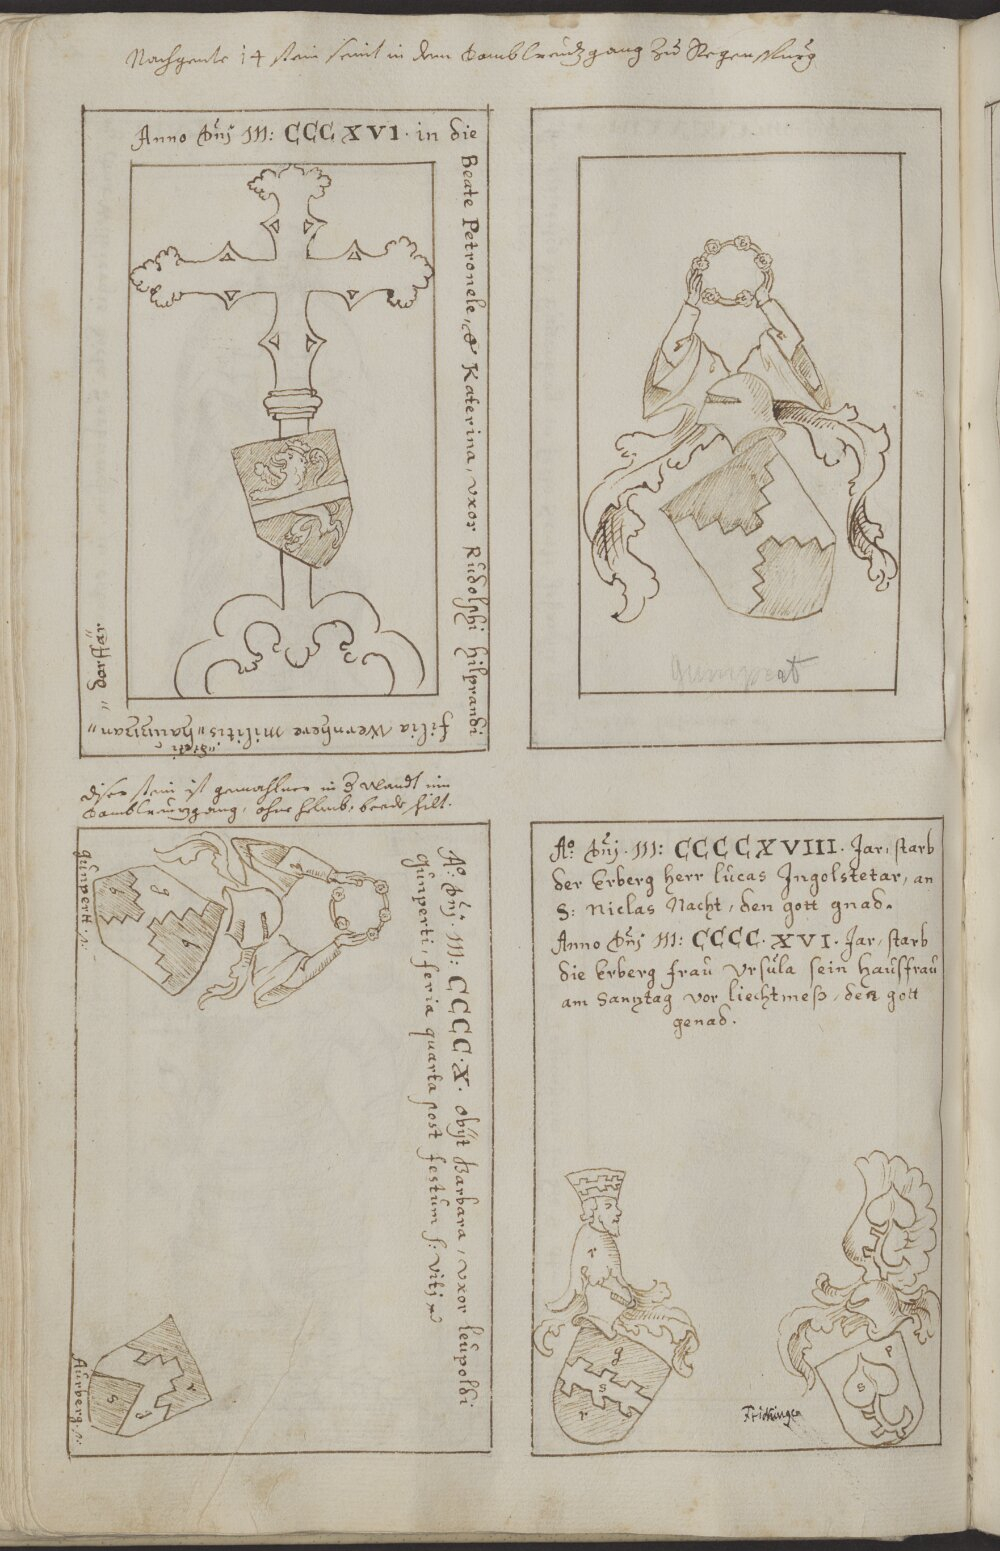 Nachgente 14 stain seint in dem Tombkreutzgang zu Regenspurg
Anno Dnj M: CCCXVI. in die
Beate Petronele, & Katerina, vxor Rudolphi hilprandi
filia Wernhere Militis, hauzzan„
„dorffär
gumprat
diser stein ist gemahlner in d wandt im
Tombkreutzgang, ohne helmb, beede schilt.
Ao. Dnj. M: CCCC.X. obijt Barbara, vxor leupoldi
gunperti, feria quarta post festum s: Vitj
gunpertt.
g
Aurberg.
r
s
g
Ao. Dnj. M: CCCCXVIII. Jar, starb
der Erberg herr lucas Ingolstetar, an
S: Niclas Nacht, den gott gnad.
Anno Dnj M: CCCC.XVI. Jar, starb
die Erberg frau Vrsula sein hausfrau
am Sanntag vor liechtmeß, der gott
genad.
r
g
s
r
r
s